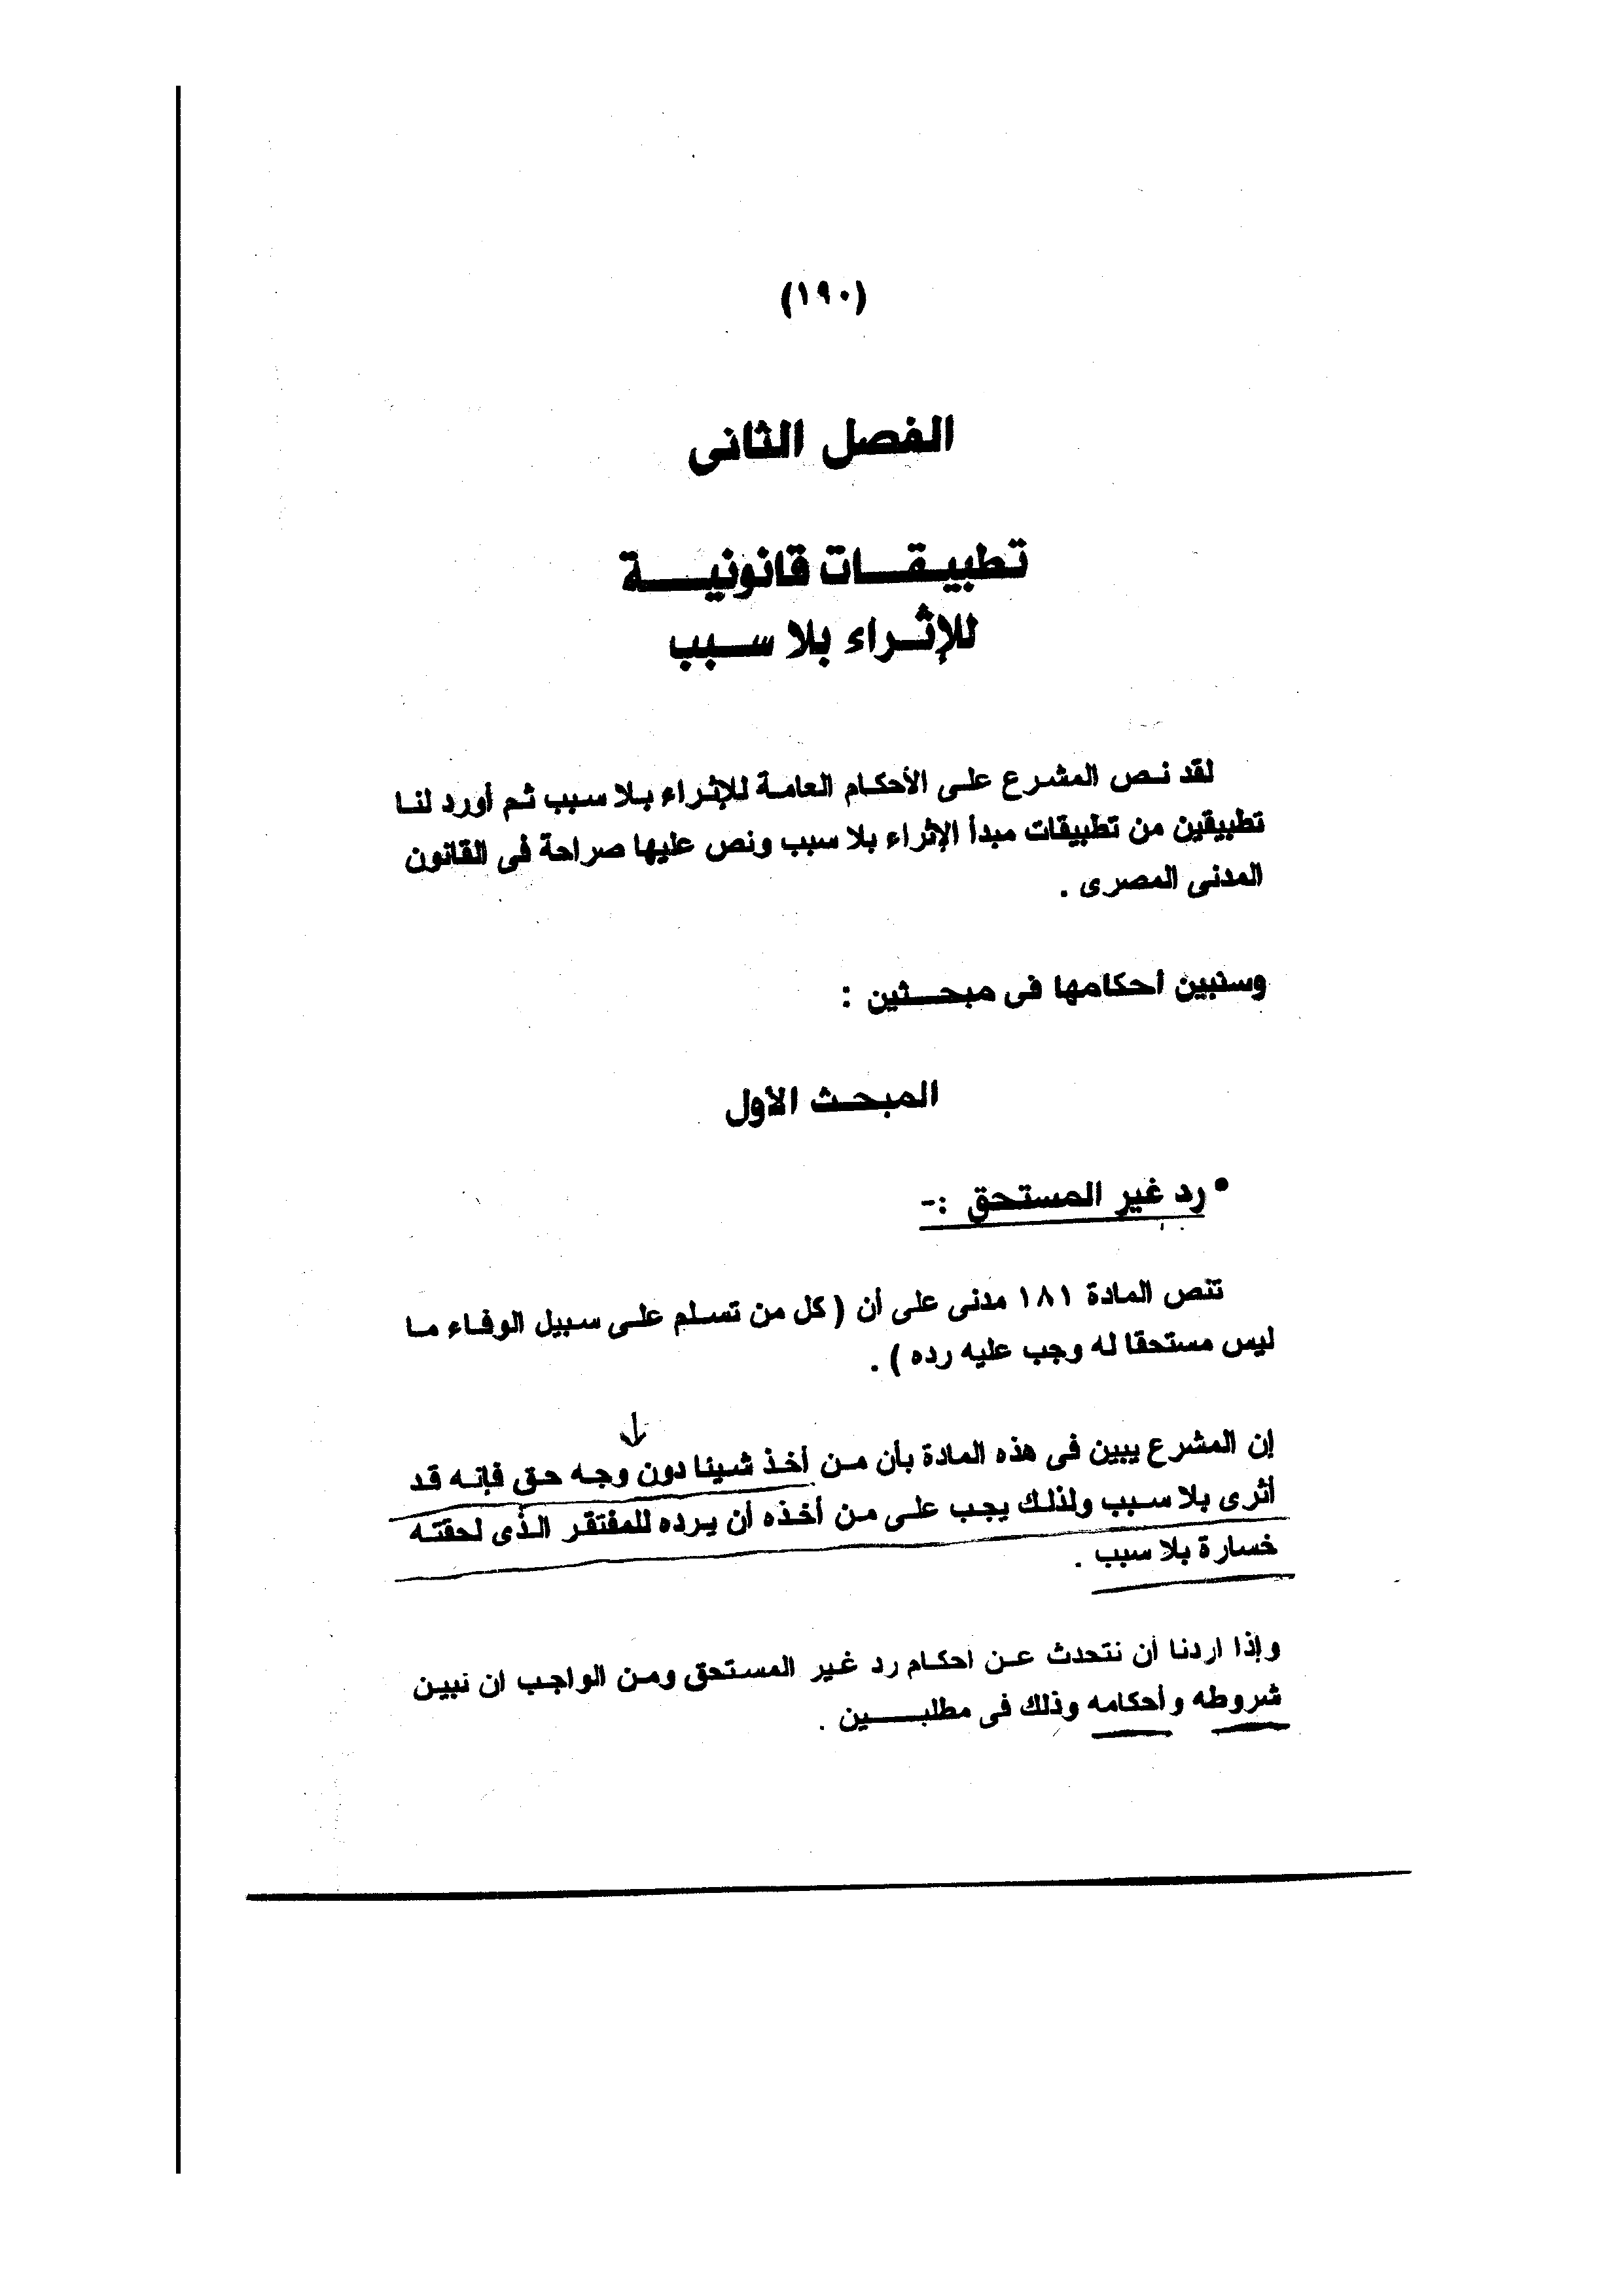 (١٩٠)
الفصل الثانى
تطبيقات قانونية
للإثراء بلا سبب
لقد نص المشرع على الأحكام العامة للإثراء بلا سبب ثم أورد لنا
تطبيقين من تطبيقات مبدأ الإثراء بلا سبب ونص عليها صراحة فى القانون
المدنى المصرى .
وسنبين احكامها فى مبحثين :
المبحث الأول
• رد غير المستحق :-
تنص المادة ١٨١ مدنى على أن ( كل من تسلم على سبيل الوفاء ما
ليس مستحقا له وجب عليه رده ) .
إن المشرع يبين فى هذه المادة بأن من أخذ شيئا دون وجه حق فإنه قد
أثرى بلا سبب ولذلك يجب على من أخذه أن يرده للمفتقر الذى لحقته
خسارة بلا سبب .
وإذا اردنا أن نتحدث عن احكام رد غير المستحق ومن الواجب ان نبين
شروطه وأحكامه وذلك فى مطلبين .